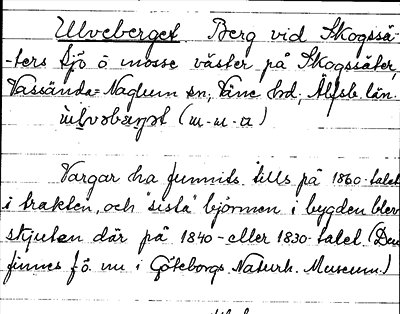 Ulveberget Berg vid Skogssä-
-ters sjö o mosse väster på Skogssäter,
Vassända-Naglum sn, Väne hd, Älfsb. län.
(m-u-a)
Vargar ha funnits tills på 1860-talet
i trakten, och "sista" björnen i bygden blev
skjuten där på 1840- eller 1830-talet. (Den
finnes f.ö. nu i Göteborgs Naturh. Museum.)